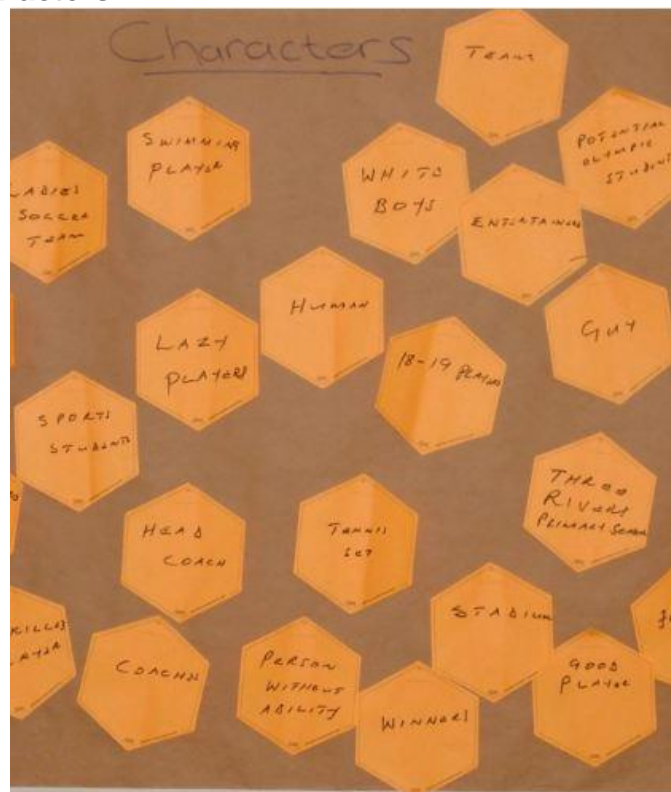 Characters
TEAM
SWIMMING
PLAYER
POTENTIAL
OLYMPIC
STUDENT
LADIES
SOCCER
TEAM
WHITE
BOYS
ENTERTAINERS
HUMAN
GUY
LAZY
PLAYERS
18-19 PLAYERS
SPORTS
STUDENTS
THREE
RIVERS
PRIMARY SCHOOL
HEAD
COACH
TENNIS
SET
STADIUM
KILLED
COACHES
PERSON
WITHOUT
ABILITY
GOOD
PLAYER
WINNERS